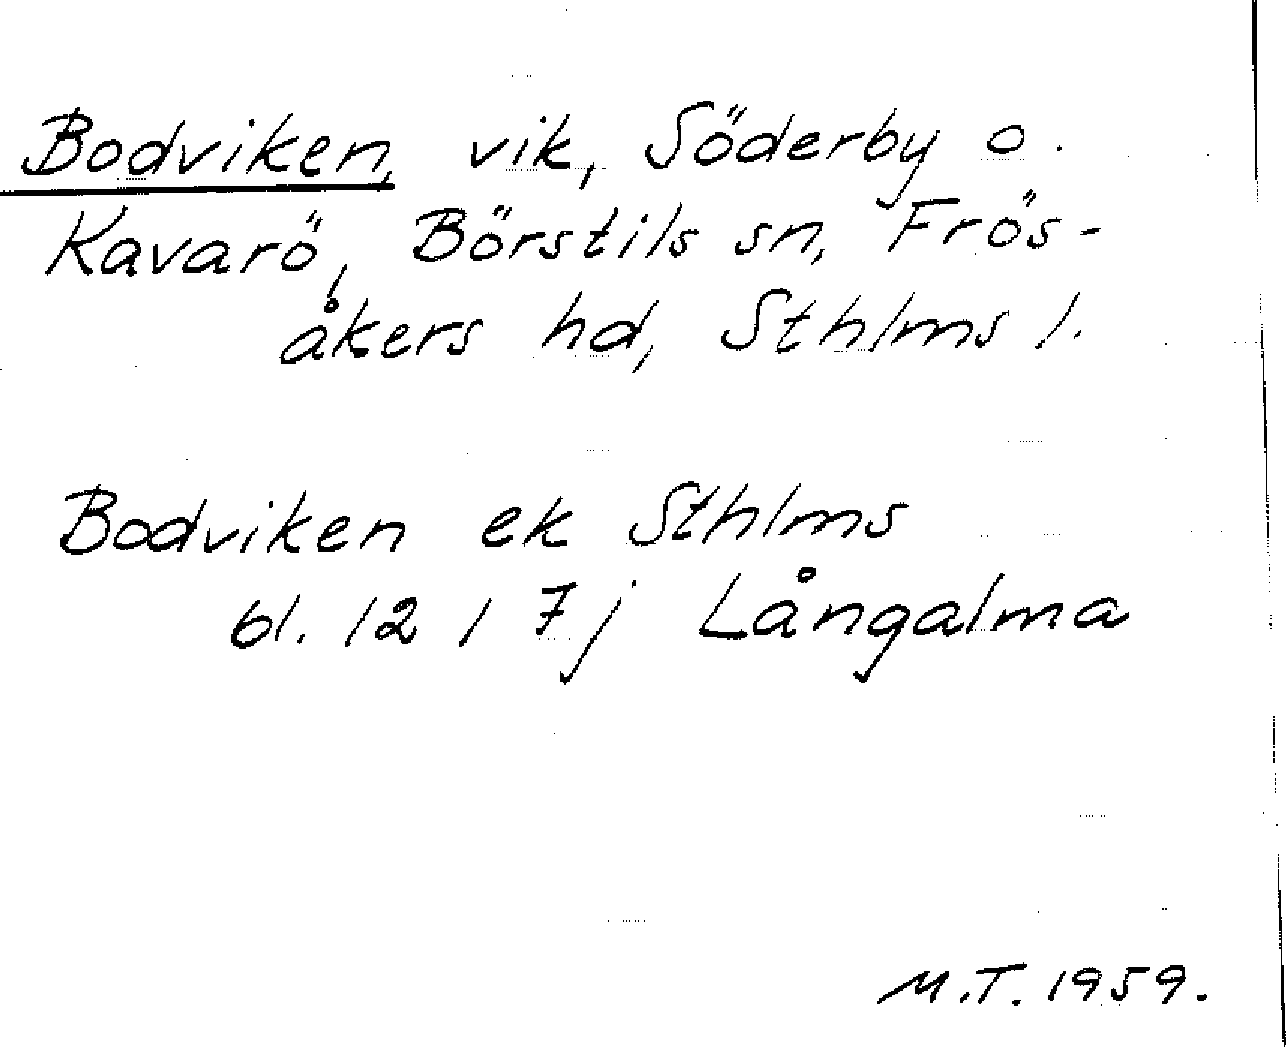 Bodviken, vik, Söderby o.
Kavarö, Börstils sn, Frös-
åkers hd, Sthlms l.
Bodviken ek Sthlms
bl. 12 I 7j Långalma
M.T. 1959.